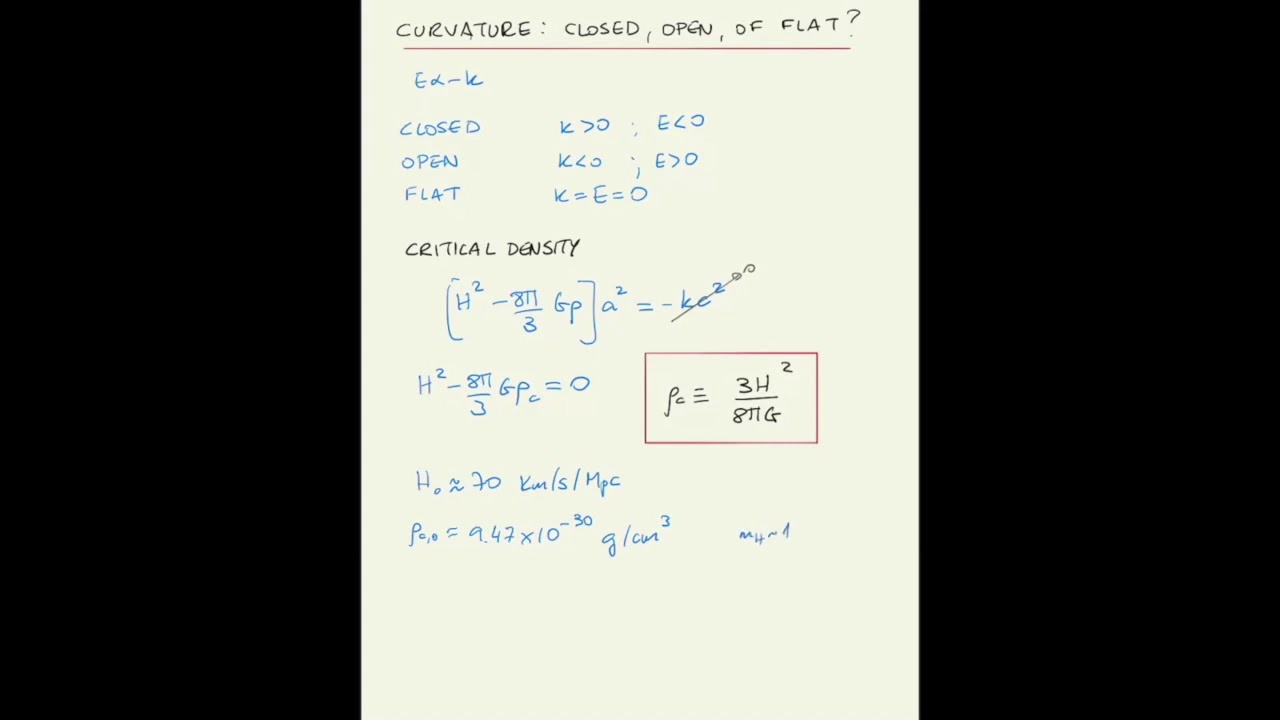 CURVATURE: CLOSED, OPEN, OF FLAT?
E∝-k
CLOSED k>0 ; E<0
OPEN k<0 ; E>0
FLAT k=E=0
CRITICAL DENSITY
[H² - 8π/3 Gρ] a² = -kc² 0
H² - 8π/3 Gρc = 0
ρc ≡ 3H²/8πG
H₀ ≈ 70 Km/s/Mpc
ρc,0 = 9.47×10⁻³⁰ g/cm³ mH~1